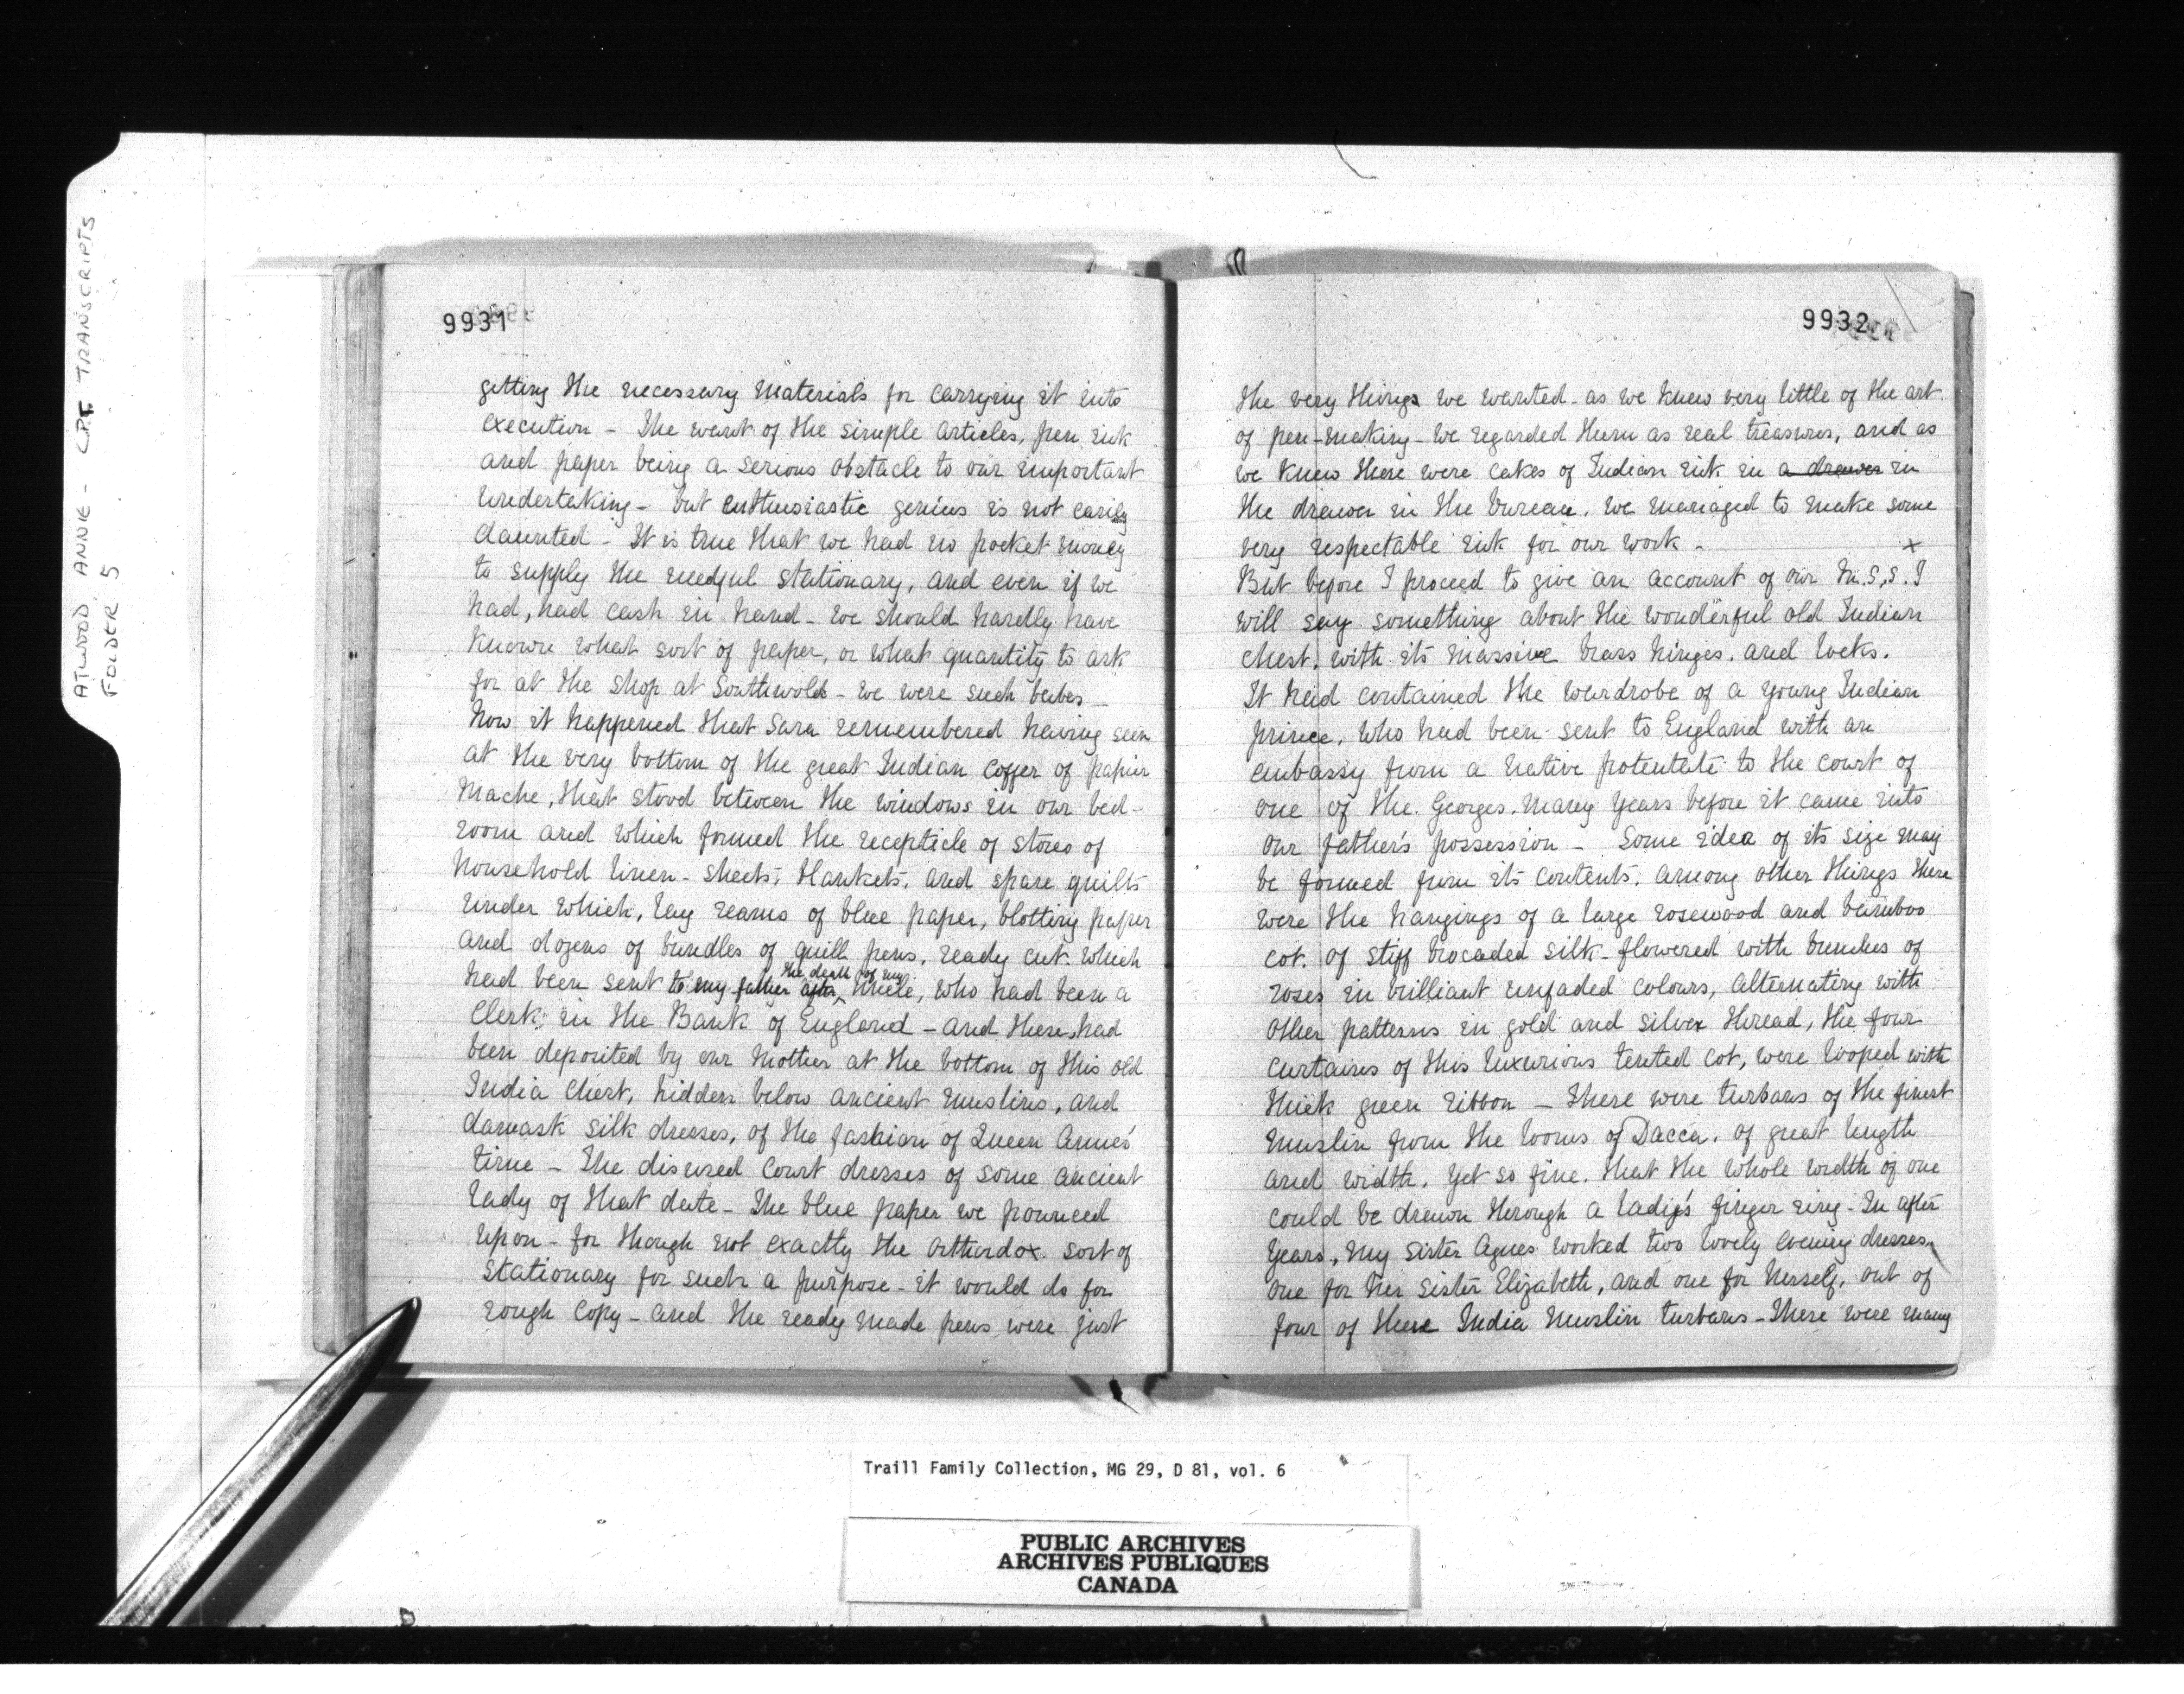 ATWOOD, ANNE - C.P.T. TRANSCRIPTS
FOLDER 5
9931
getting the necessary materials for carrying it into
execution - The want of the simple articles, pen ink
and paper being a serious obstacle to our important
undertaking - but enthusiastic genius is not easily
daunted - It is true that we had no pocket money
to supply the needful stationary, and even if we
had, had cash in hand - we should hardly have
known what sort of paper, or what quantity to ask
for at the shop at Southwold - we were such babes -
Now it happened that Sara remembered having seen
at the very bottom of the great Indian coffer of papier
Mache, that stood between the windows in our bed-
room and which formed the recepticle of stores of
household linen - sheets, blankets, and spare quilts
under which, lay reams of blue paper, blotting paper
and dozens of bundles of quill pens, ready cut. which
had been sent to my father after the death of my Uncle, who had been a
Clerk in the Bank of England - and these had
been deposited by our Mother at the bottom of this old
India Chest, hidden below ancient muslins, and
damask silk dresses, of the fashion of Queen Anne's
time - The disused Court dresses of some ancient
lady of that date - The blue paper we pounced
upon - for though not exactly the orthordox sort of
Stationary for such a purpose - it would do for
rough copy - and the ready made pens were just
9932
the very things we wanted - as we knew very little of the art
of pen-making - we regarded them as real treasures, and as
we knew there were cakes of Indian ink in a drawer in
the drawer in the bureau. we managed to make some
very respectable ink for our work - x
But before I proceed to give an account of our M.S.S. I
will say something about the wonderful old Indian
chest. with its massive brass hinges. and locks.
It had contained the wardrobe of a young Indian
prince, who had been sent to England with an
embassy from a native potentate to the court of
one of the Georges. many years before it came into
our father's possession - Some idea of its size may
be formed from its contents. among other things there
were the hangings of a large rosewood and bamboo
cot. of stiff brocaded silk - flowered with bunches of
roses in brilliant unfaded colours, alternating with
other patterns in gold and silver thread, the four
curtains of this luxurious tented cot, were looped with
thick green ribbon - There were turbans of the finest
muslin from the looms of Dacca, of great length
and width. yet so fine. that the whole width of one
could be drawn through a lady's finger ring - In after
years, my sister Agnes worked two lovely evening dresses
one for her sister Elizabeth, and one for herself, out of
four of these India muslin turbans - There were many
Traill Family Collection, MG 29, D 81, vol. 6
PUBLIC ARCHIVES
ARCHIVES PUBLIQUES
CANADA